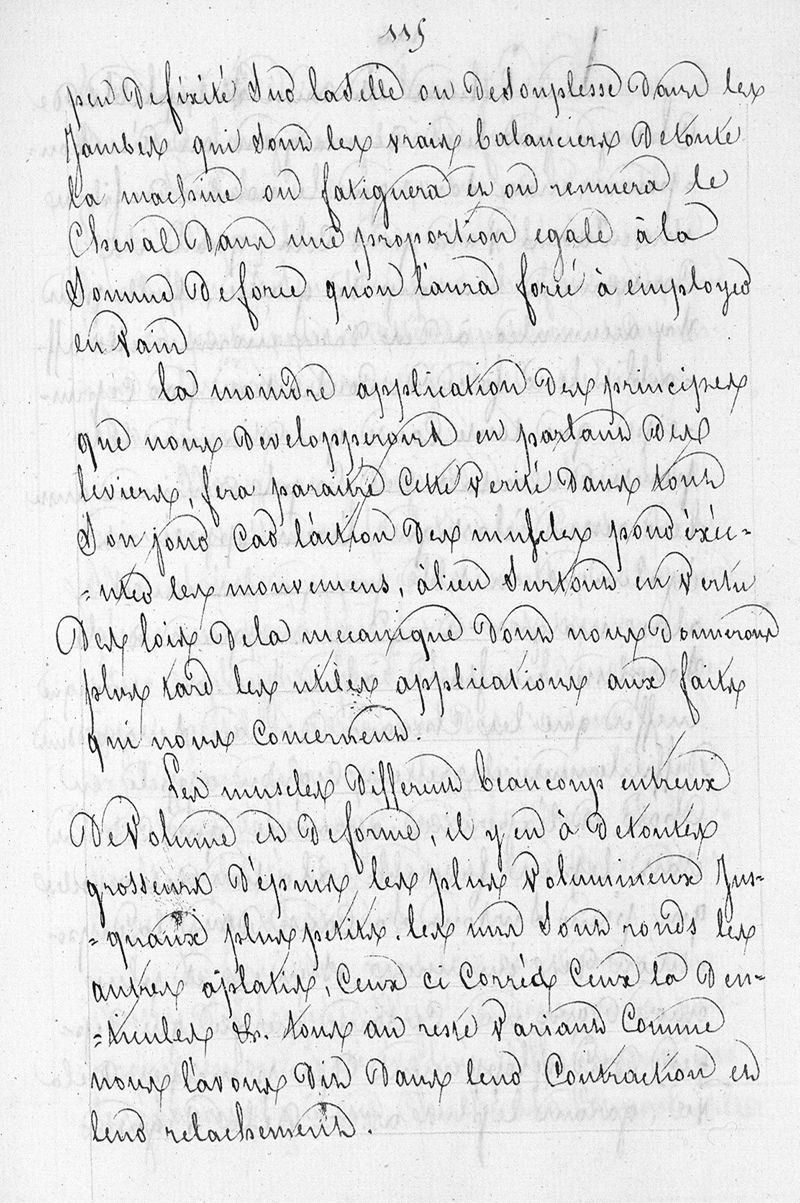 115
peu de fixité sur la Selle ou de Souplesse dans les
Jambes qui sont les vrais balanciers de toute
la machine on fatiguera et on remuera le
Cheval dans une proportion egale à la
Somme de force qu'on l'aura forcé à employer
en vain
La moindre application des principes
que nous developperont en partant des
leviers, fera paraitre cette verité dans tout
Son jour Car l'action des muscles pour éxéc-
-uter les mouvemens, à lieu Surtout en vertu
Des loix de la mecanique dont nous donnerons
plus tard les utiles applications aux faits
qui nous concernent.
Les muscles different beaucoup entreux
De Volume et de forme, il y en à de toutes
grosseurs dépuis les plus volumineux Jus-
-quaux plus petits. les uns Sont ronds les
autres aplatis, Ceux ci Corrés Ceux la Den-
-ticules &. tous au reste Variant Comme
nous l'avons dit dans leur Contraction et
leur relachement.